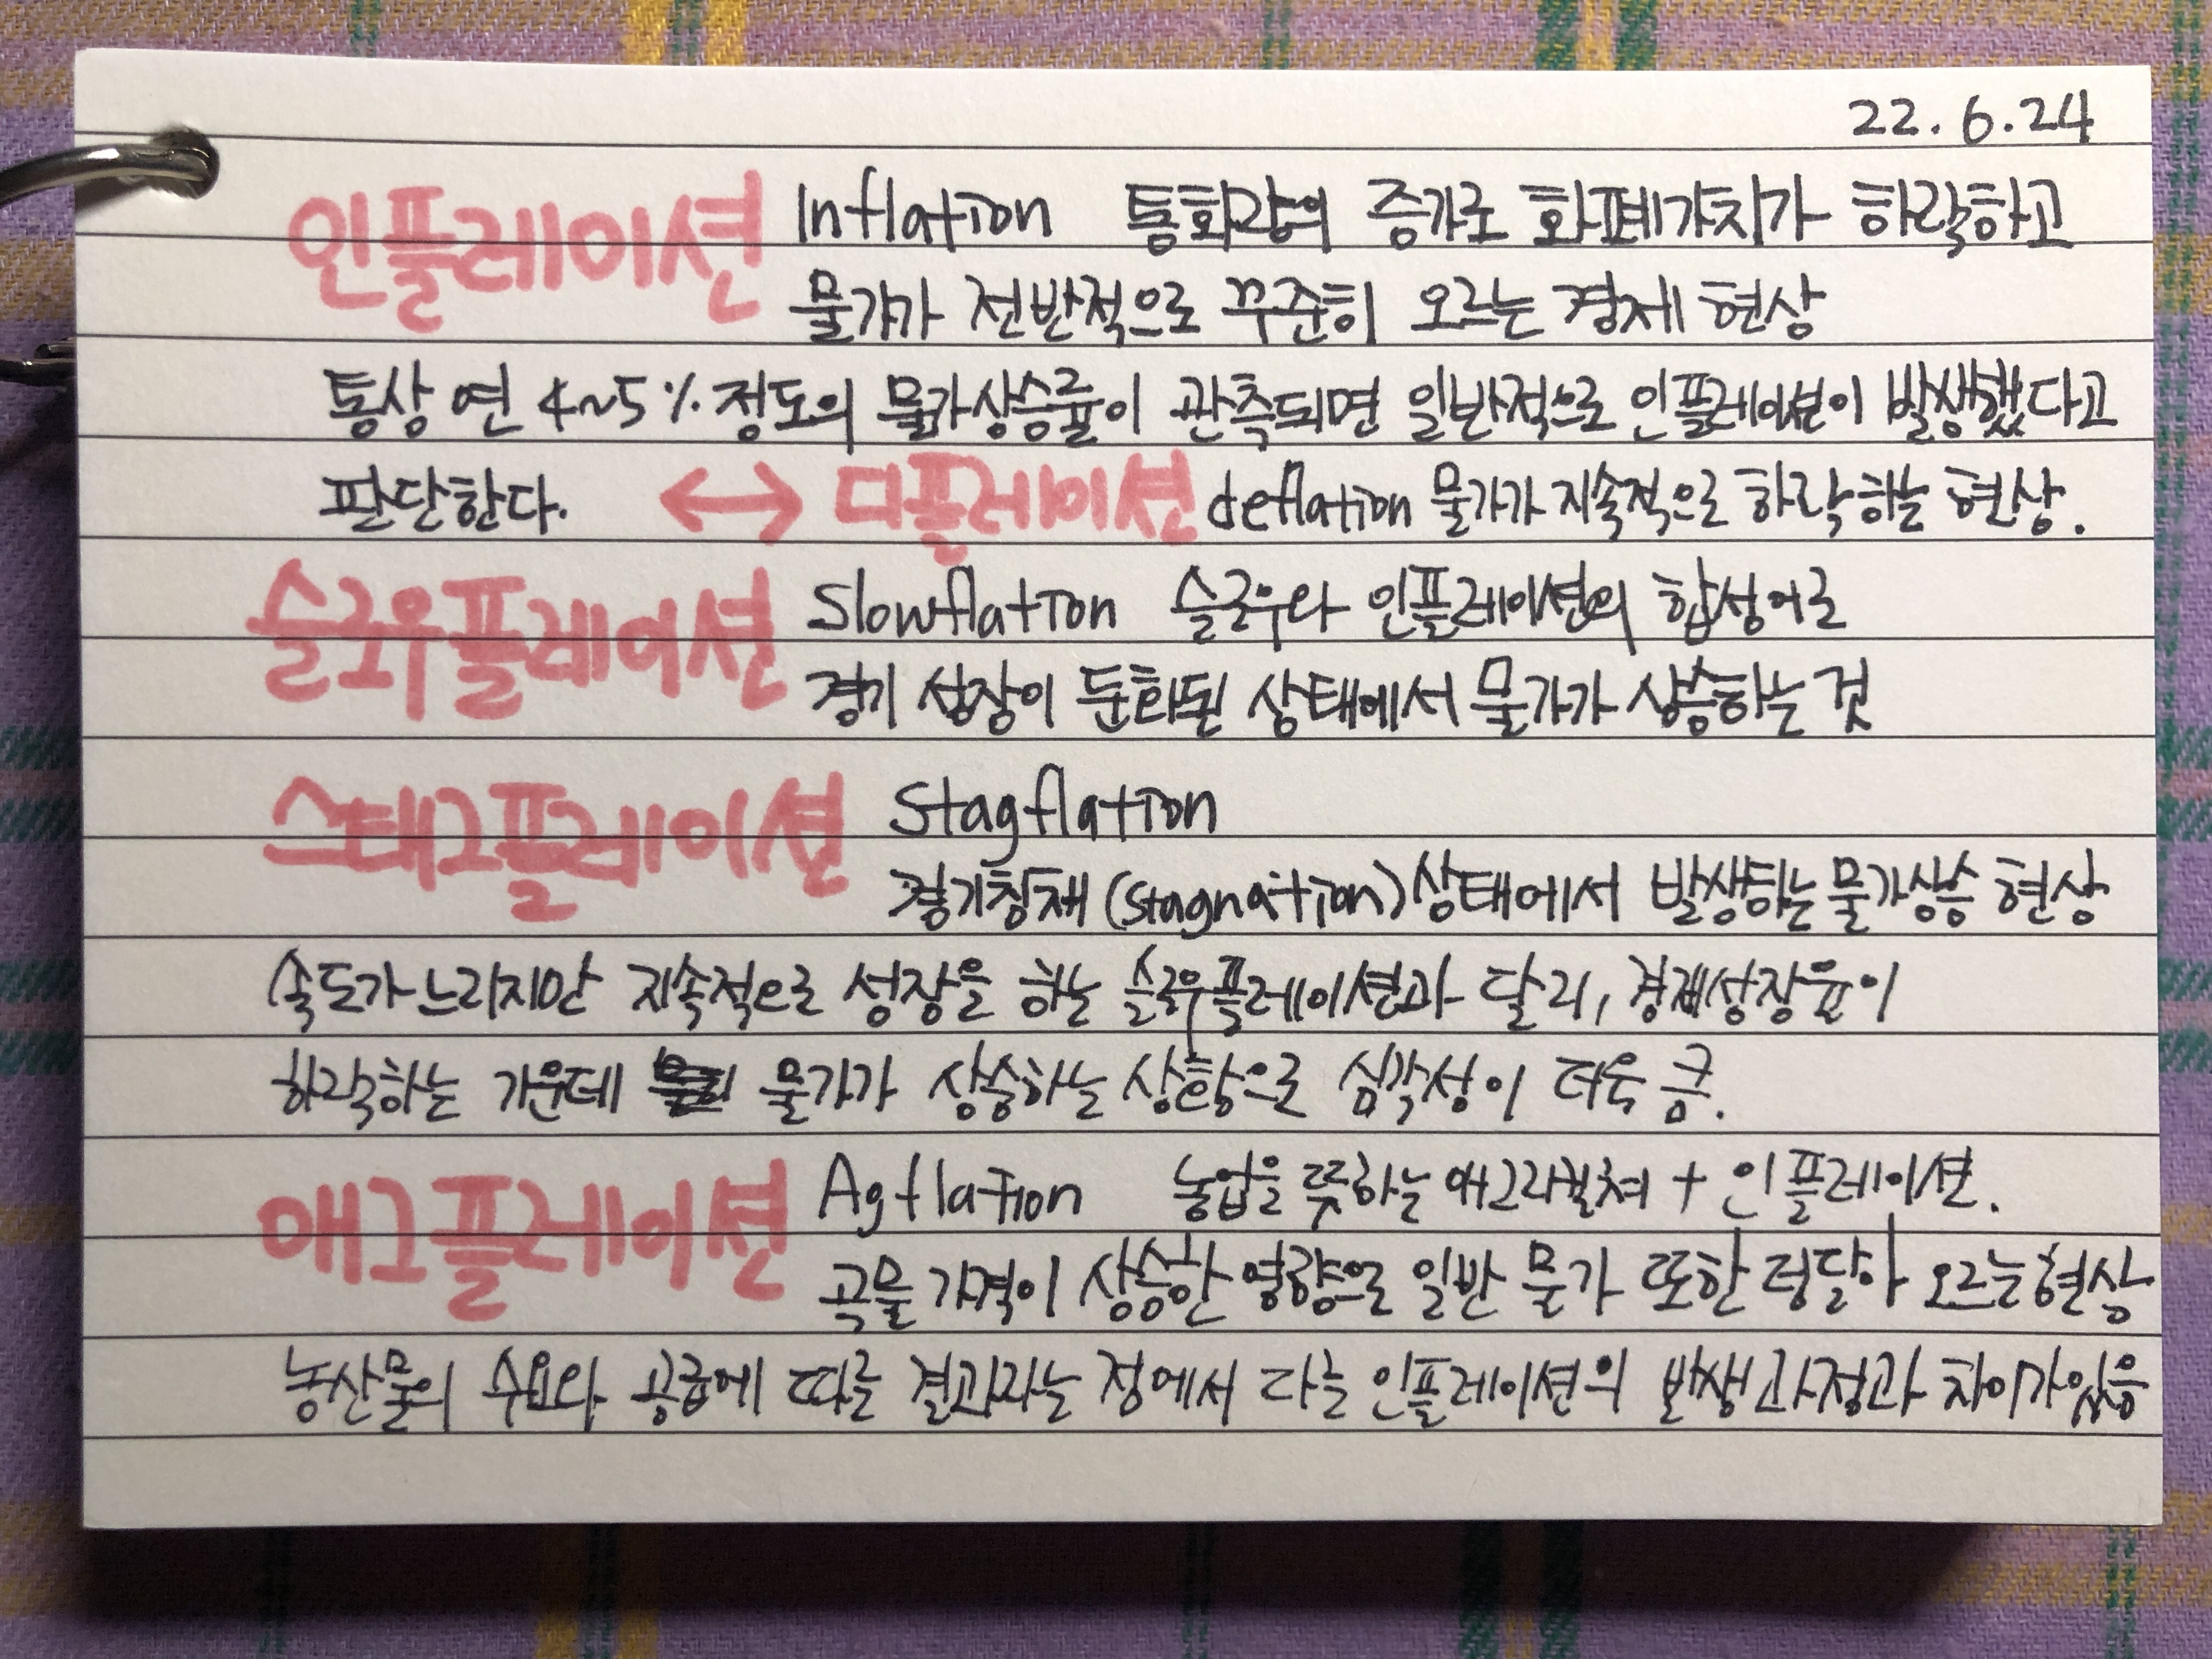 22.6.24
인플레이션 Inflation 통화량의 증가로 화폐가치가 하락하고
물가가 전반적으로 꾸준히 오르는 경제 현상
통상 연 4~5% 정도의 물가상승률이 관측되면 일반적으로 인플레이션이 발생했다고
판단한다. ↔ 디플레이션 deflation 물가가 지속적으로 하락하는 현상.
슬로우플레이션 Slowflation 슬로우와 인플레이션의 합성어로
경기 성장이 둔화된 상태에서 물가가 상승하는 것
스태그플레이션 Stagflation
경기침체 (stagnation) 상태에서 발생하는 물가상승 현상
속도가 느리지만 지속적으로 성장을 하는 슬로우플레이션과 달리, 경제성장율이
하락하는 가운데 물가가 상승하는 상황으로 심각성이 더욱 큼.
애그플레이션 Agflation 농업을 뜻하는 애그리컬쳐 + 인플레이션.
곡물 가격이 상승한 영향으로 일반 물가 또한 덩달아 오르는 현상
농산물의 수요와 공급에 따른 결과라는 점에서 다른 인플레이션의 발생 과정과 차이가 있음